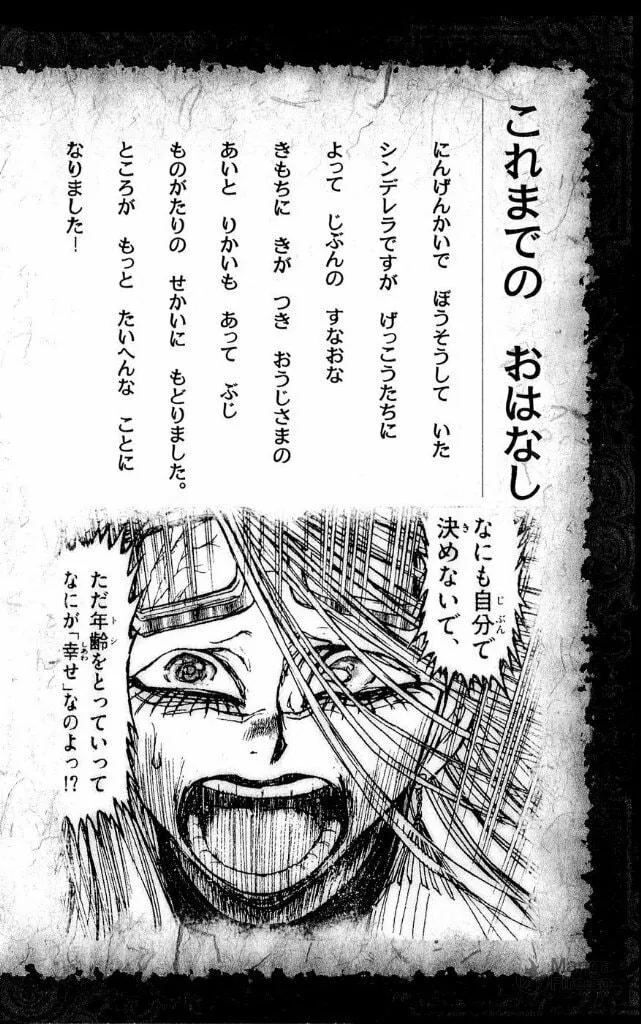 これまでの　おはなし
にんげんかいで　ぼうそうして　いた
シンデレラですが　げっこうたちに
よって　じぶんの　すなおな
きもちに　きが　つき　おうじさまの
あいと　りかいも　あって　ぶじ
ものがたりの　せかいに　もどりました。
ところが　もっと　たいへんな　ことに
なりました！
なにも自分で
決めないで、
ただ年齢をとっていって
なにが「幸せ」なのよっ!?